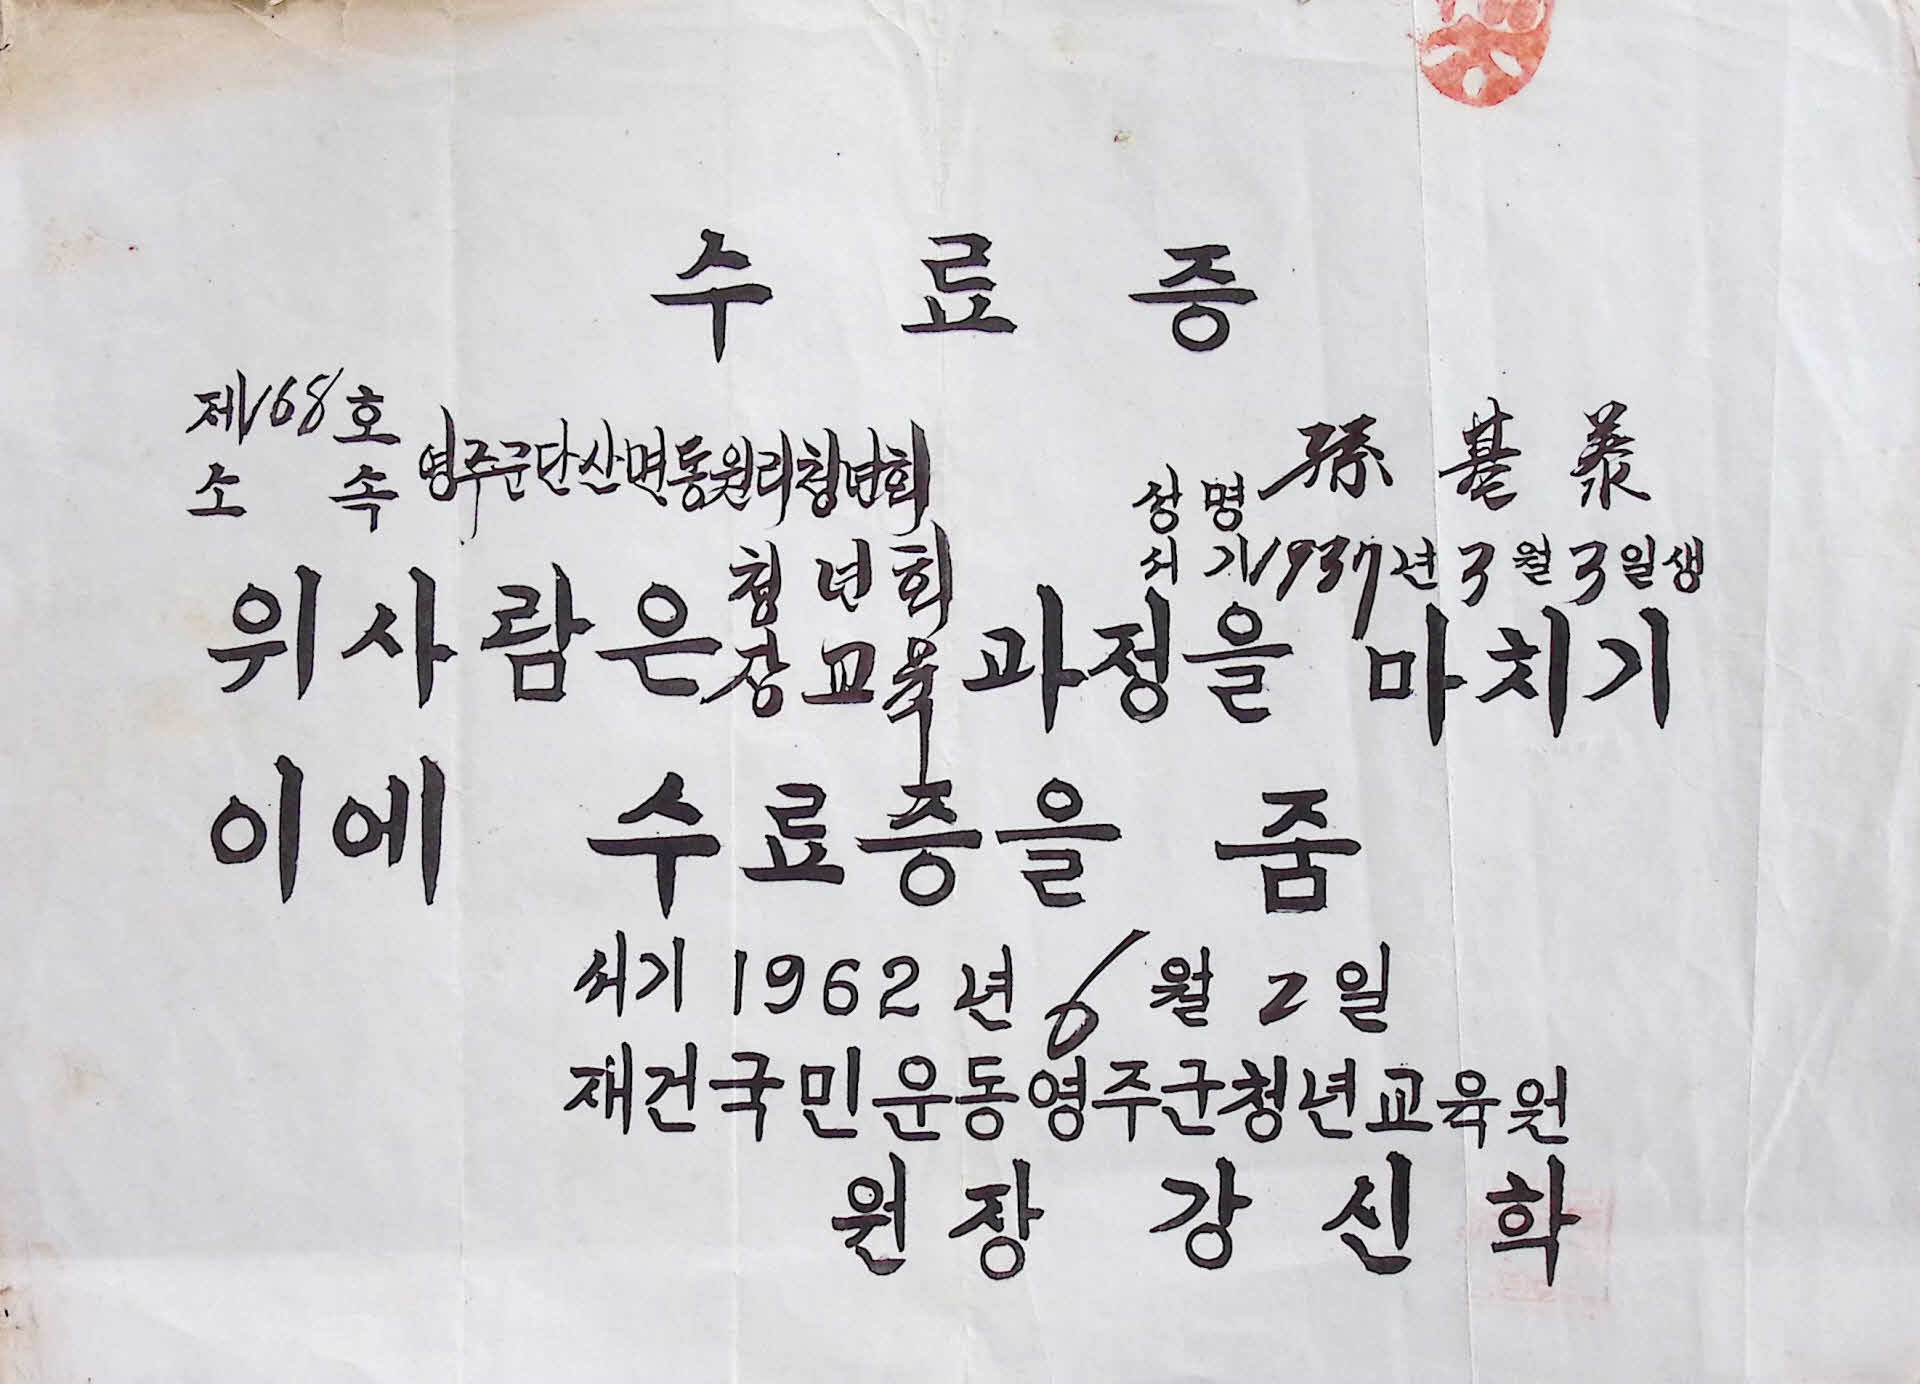 수료증
제168호
소속 영주군단산면동원리청년회
성명 孫基泰
서기1937년3월3일생
위사람은 청년회장교육 과정을 마치기
이에 수료증을 줌
서기 1962년 6월 2일
재건국민운동영주군청년교육원
원장 강신학